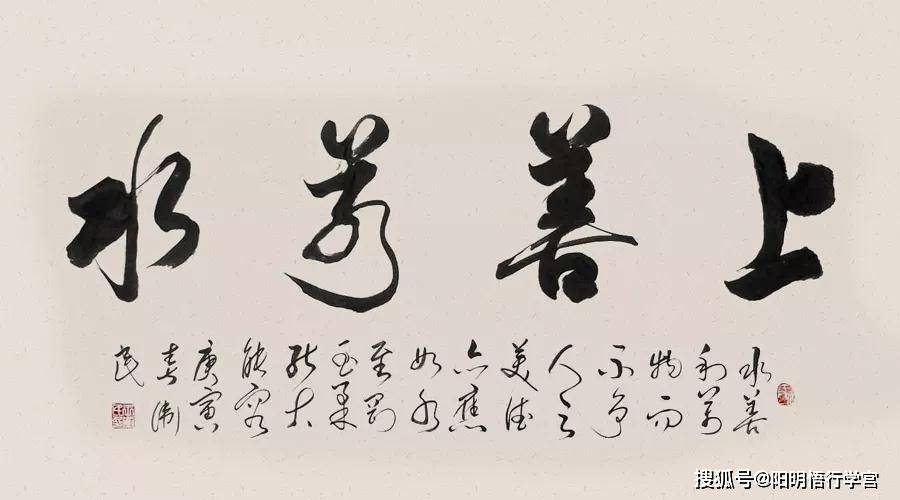 上善若水
水善
利萬
物而
不争
人之
美德
亦應
如水
至剛
至柔
能大
能容
庚寅
春衛
民
搜狐号@阳明悟行学宫